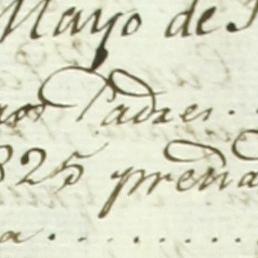 Mayo de
Padres.
825 preña
a..........